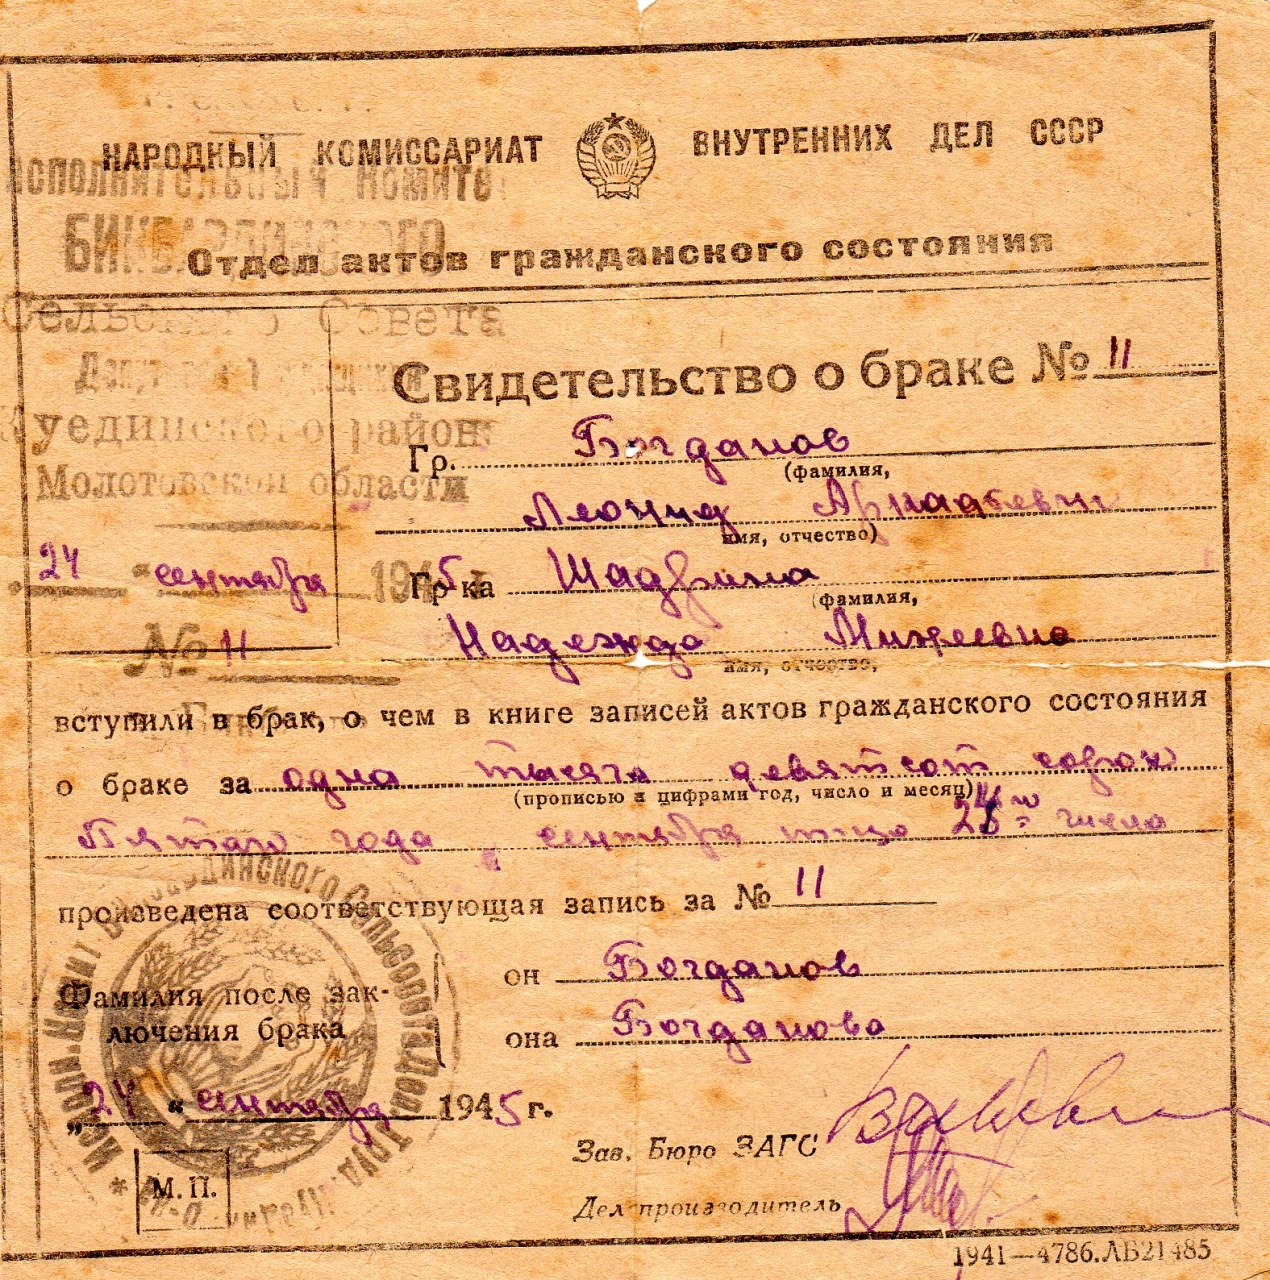 НАРОДНЫЙ КОМИССАРИАТ ВНУТРЕННИХ ДЕЛ СССР
Отдел актов гражданского состояния
Исполнительный Комитет
БИКБАРДИНСКОГО
Сельского Совета
Куединского района
Молотовской области
24 "сентября 1945 г
№ 11
Свидетельство о браке № 11
Гр. Богданов
(фамилия,
Леонид Аркадьевич
имя, отчество)
Гр-ка Шадрина
(фамилия,
Надежда Михеевна
имя, отчество,
вступили в брак, о чем в книге записей актов гражданского состояния
о браке за одна тысяча девятсот сорок
(прописью и цифрами год, число и месяц)
Пятого года сентября 24 числа
произведена соответствующая запись за № 11
Фамилия после зак-
лючения брака
он Богданов
она Богданова
„24 “ сентября 1945 г.
Зав. Бюро ЗАГС
Делопроизводитель
М. П.
1941—4786.ЛБ21485